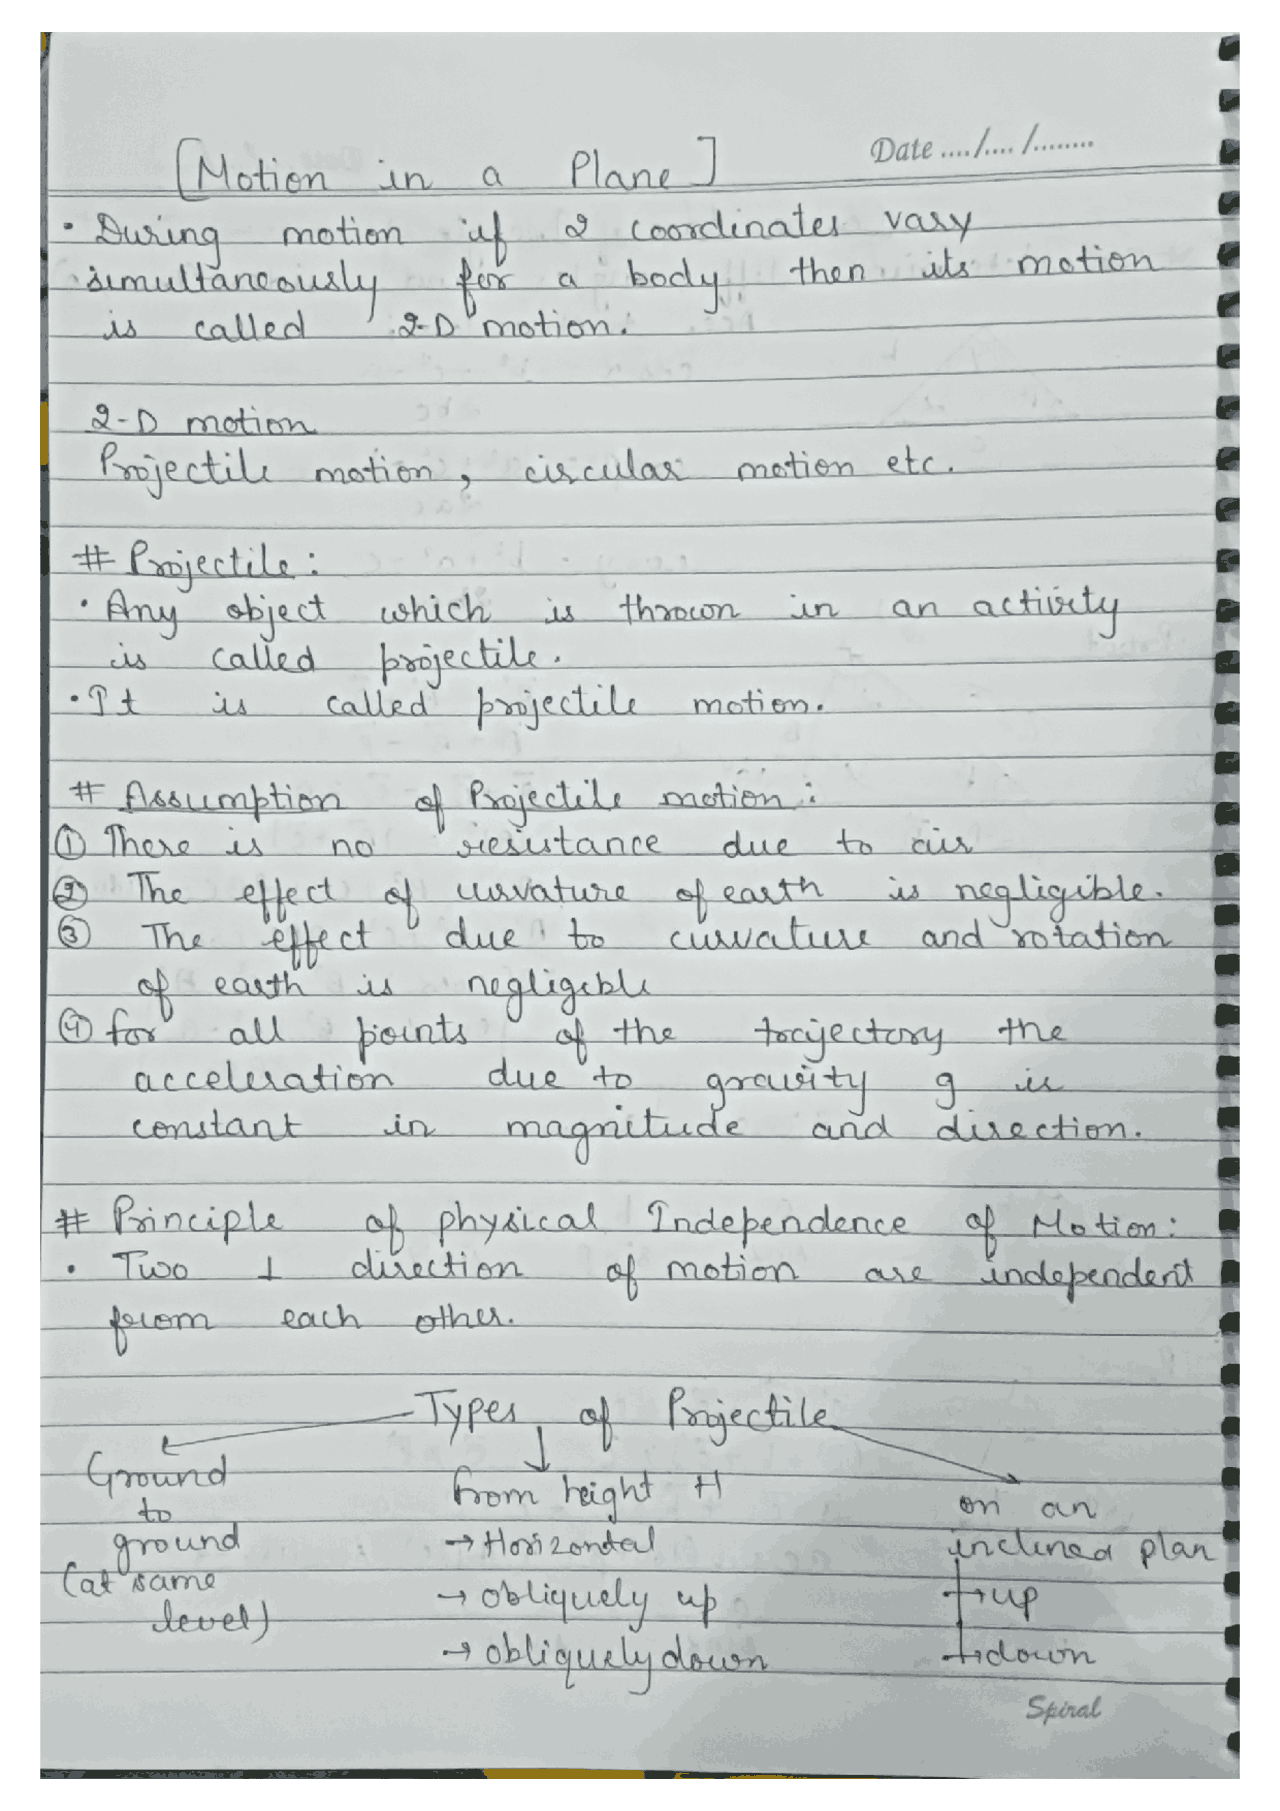 [Motion in a Plane]
Date ..../..../........
• During motion if 2 coordinates vary
simultaneously for a body then its motion
is called 2-D motion.
2-D motion
Projectile motion, circular motion etc.
# Projectile:
• Any object which is thrown in an activity
is called projectile.
• It is called projectile motion.
# Assumption of Projectile motion:
① There is no resistance due to air
② The effect of curvature of earth is negligible.
③ The effect due to curvature and rotation
of earth is negligible
④ for all points of the trajectory the
acceleration due to gravity g is
constant in magnitude and direction.
# Principle of physical Independence of Motion:
• Two ⊥ direction of motion are independent
from each other.
Types of Projectile
Ground
to
ground
(at same
level)
from height H
→ Horizontal
→ obliquely up
→ obliquely down
on an
inclined plan
→ up
→ down
Spiral